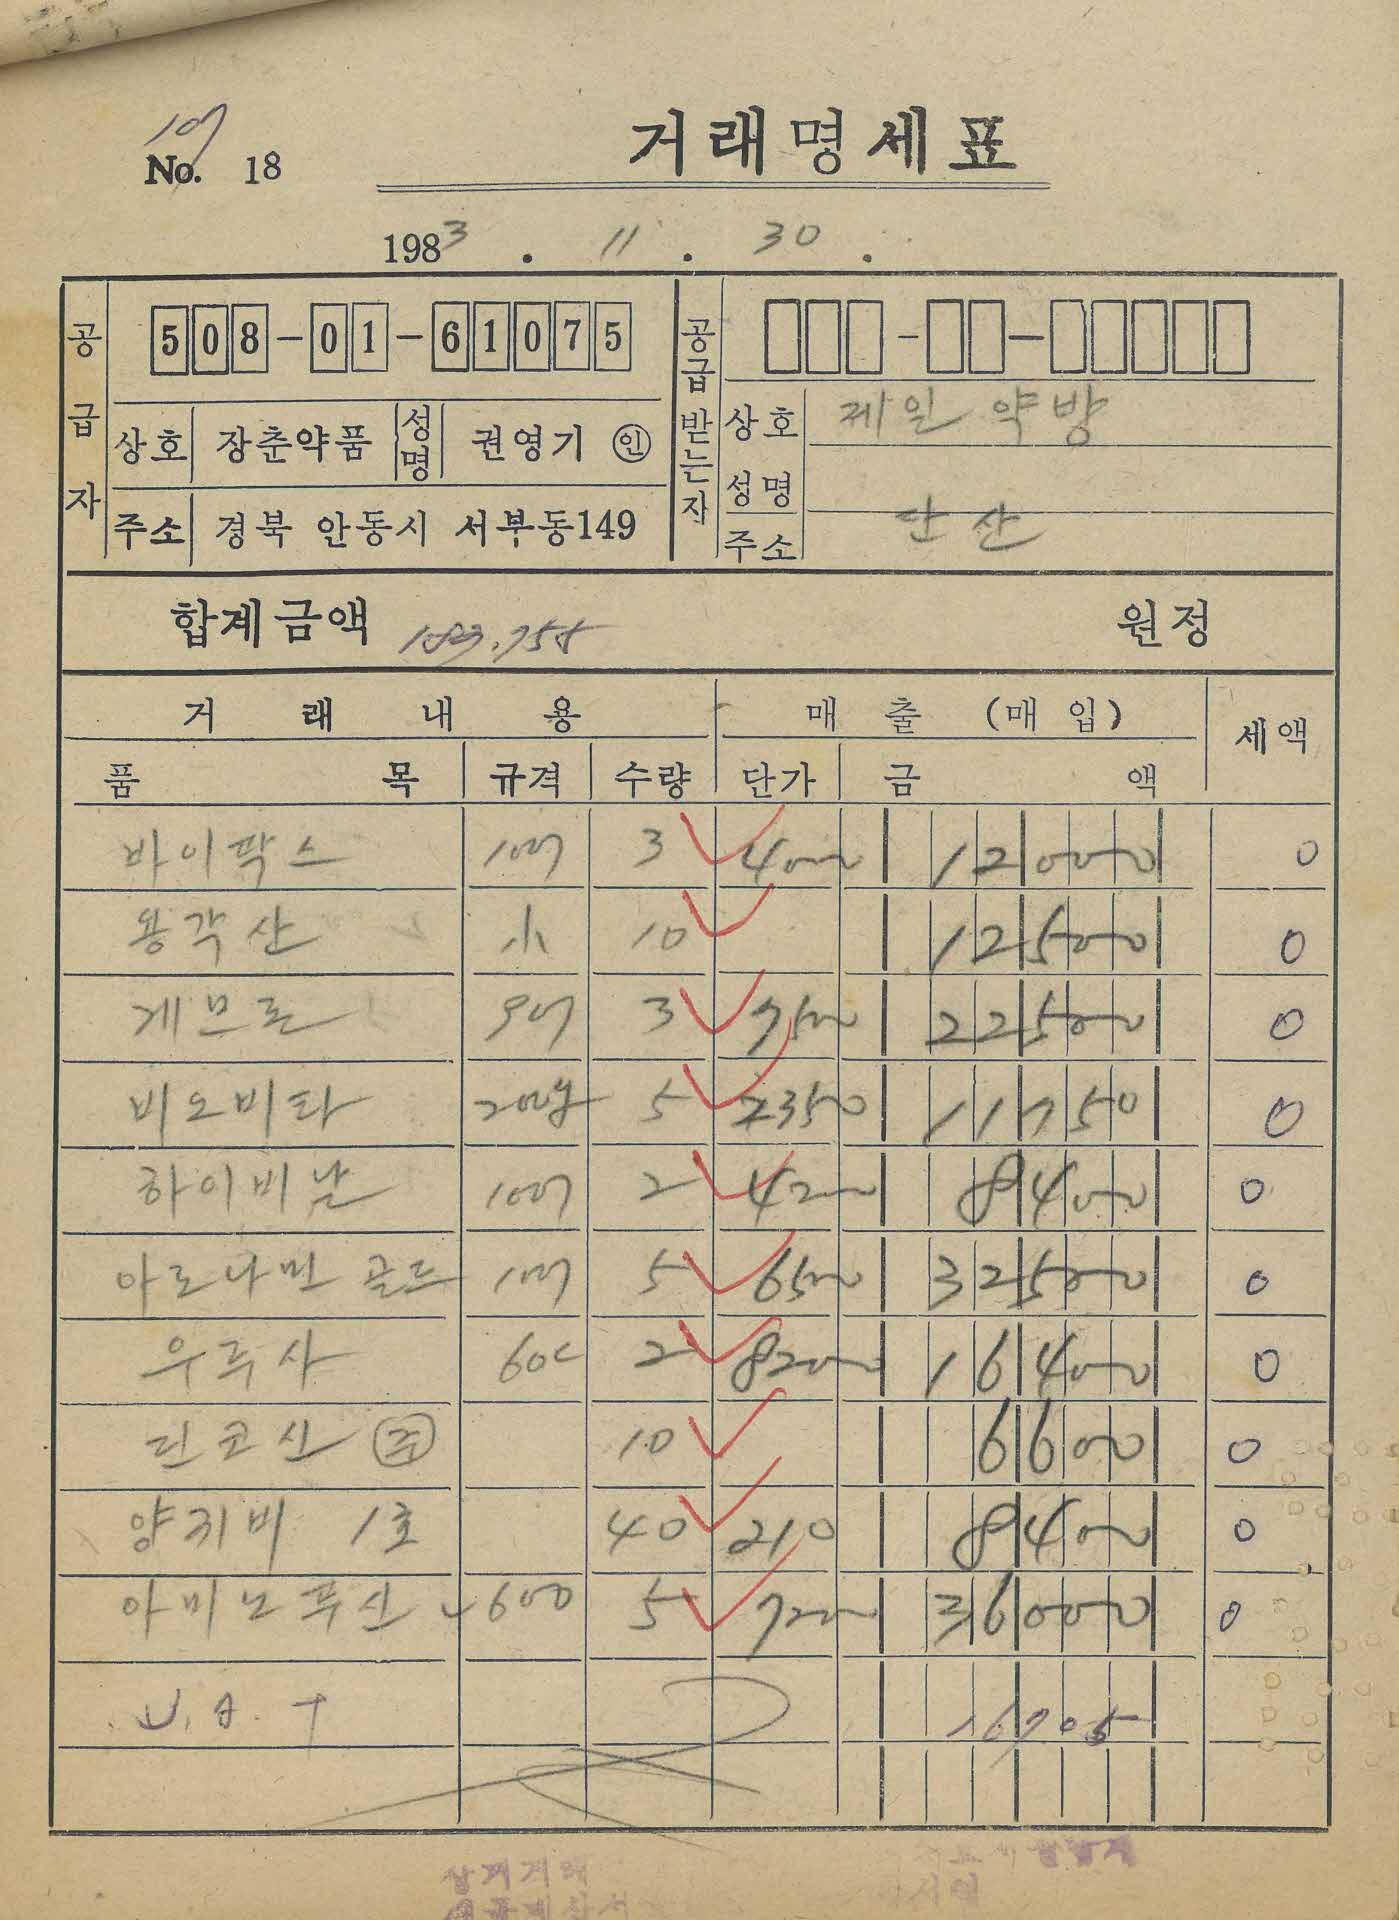 109
No. 18
거래명세표
1983. 11. 30.
공급자
508-01-61075
상호 장춘약품 성명 권영기 ㊞
주소 경북 안동시 서부동149
공급받는자
상호 제일약방
성명
주소 단산
합계금액 183,755 원정
거래내용 매출(매입) 세액
품목 규격 수량 단가 금액
바이팍스 100T 3 4000 12000 0
용각산 小 10 12500 0
게므론 90T 3 7500 22500 0
비오비타 5 2350 11750 0
하이비날 100T 2 4200 8400 0
아로나민 골드 100T 5 6500 32500 0
우루사 60C 2 8200 16400 0
린코신 ㊟ 10 6600 0
양지비 1호 40 210 8400 0
아미노푸신 600 5 7200 36000 0
V.A.T 16705